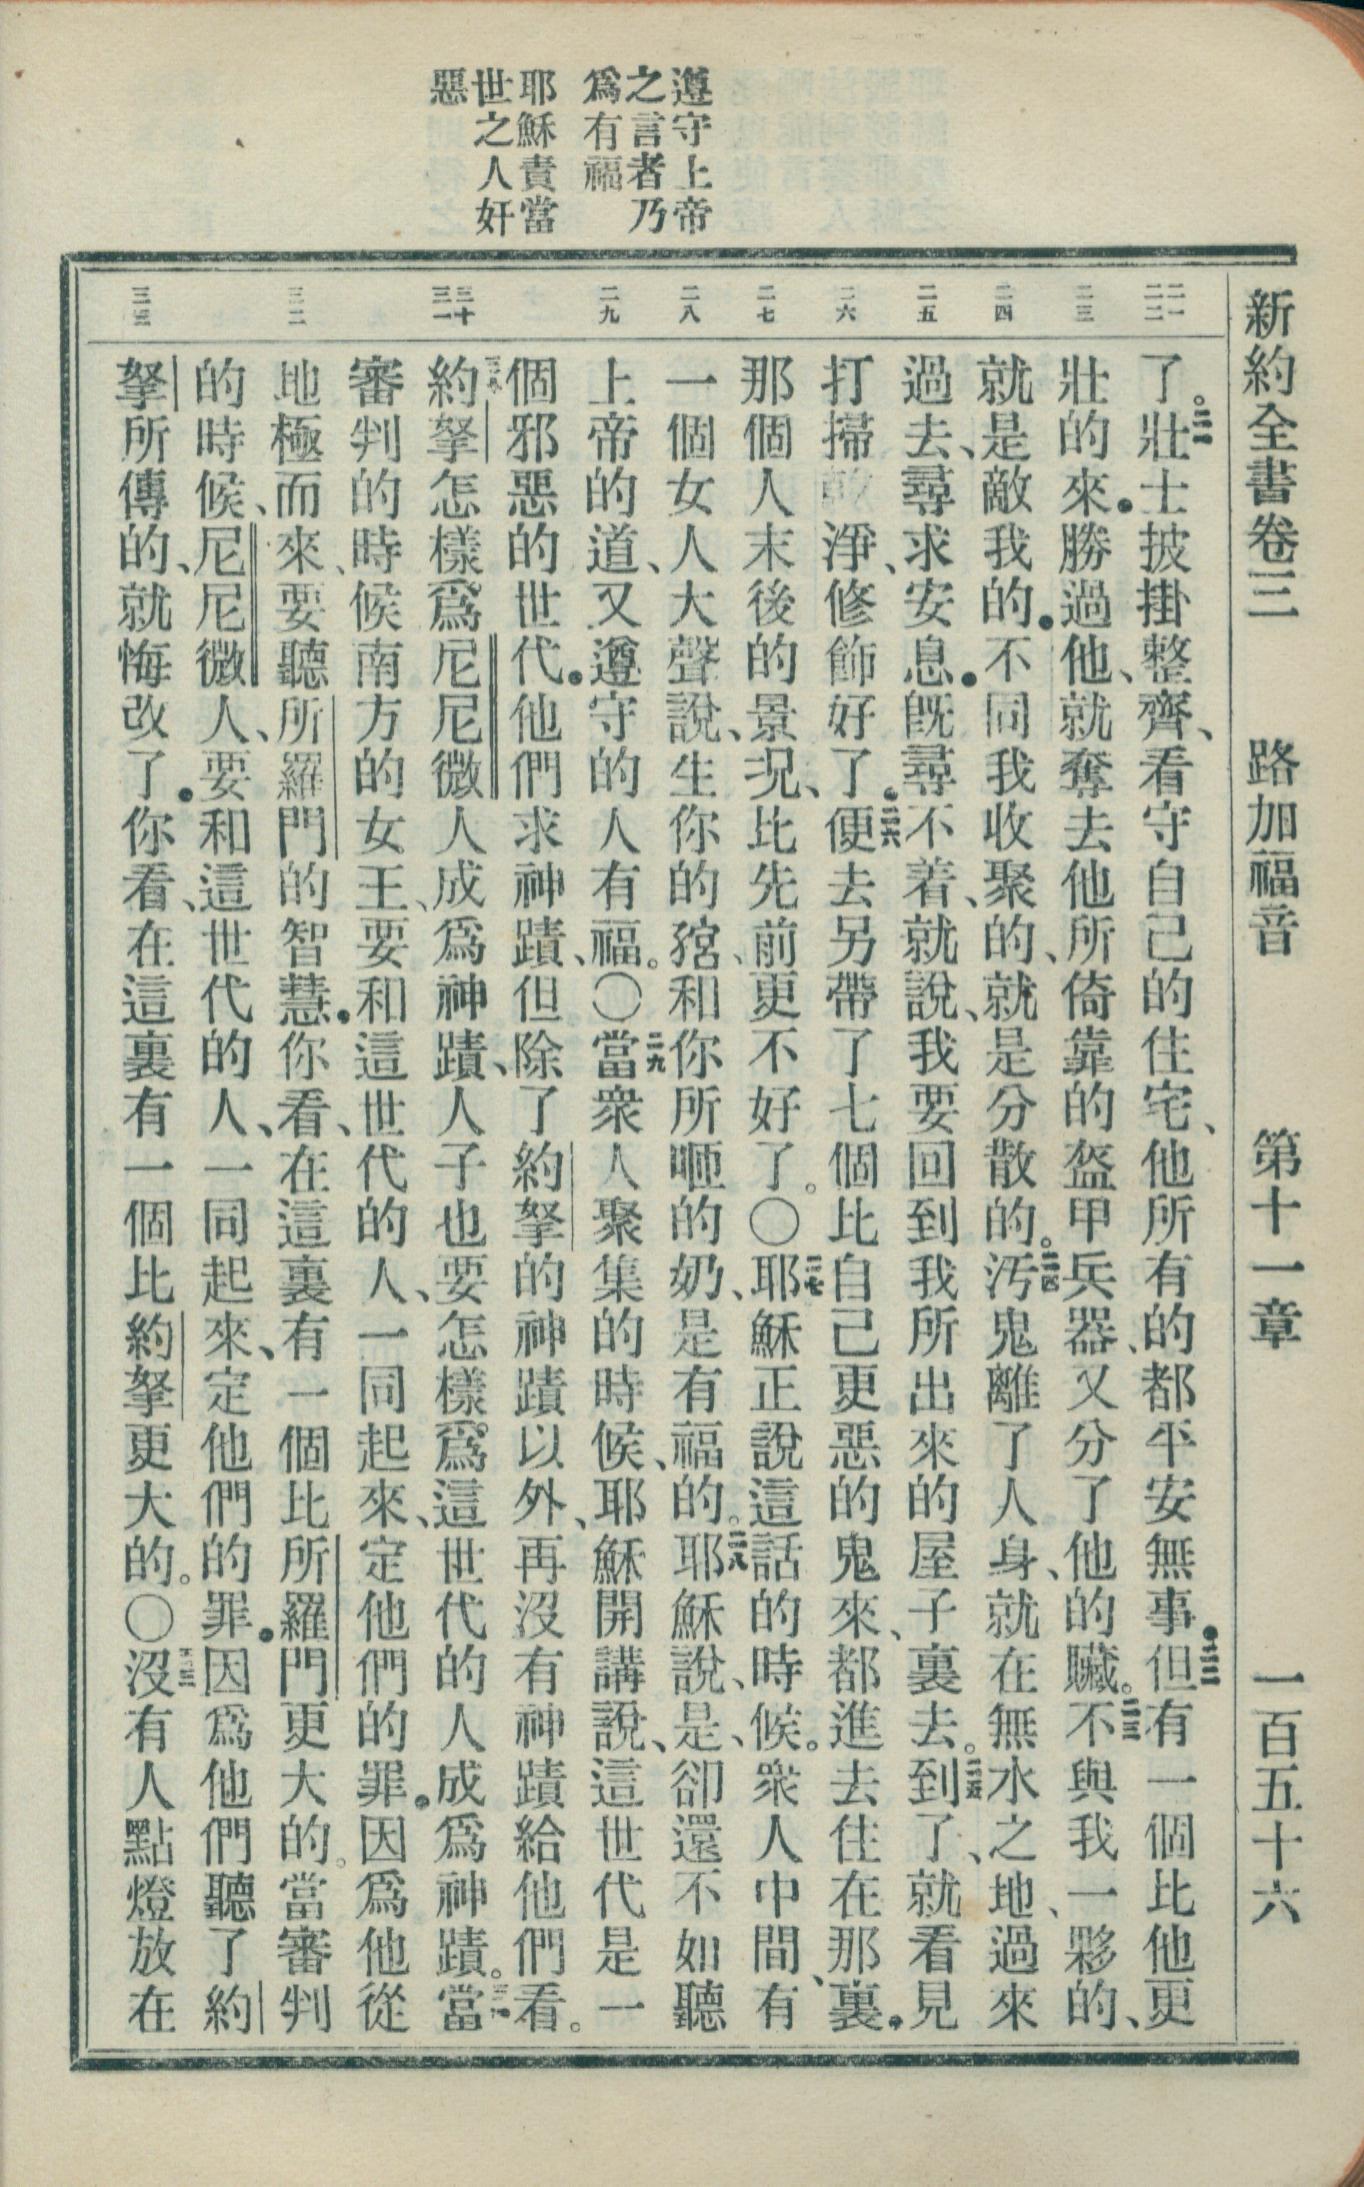 新約全書卷三　路加福音　第十一章　一百五十六
遵守上帝
之言者乃
爲有福
耶穌責當
世之人奸
惡
二一
二二
二三
二四
二五
二六
二七
二八
二九
三十
三一
三二
三三
了。二一壯士披掛整齊、看守自己的住宅、他所有的都平安無事．二二但有一個比他更
壯的來．勝過他、就奪去他所倚靠的盔甲兵器、又分了他的贓。二三不與我一夥的、
就是敵我的．不同我收聚的、就是分散的。二四汚鬼離了人身、就在無水之地、過來
過去、尋求安息．旣尋不着、就說、我要回到我所出來的屋子裏去。二五到了、就看見
打掃淨、修飾好了．二六便去另帶了七個比自己更惡的鬼來、都進去住在那裏．
那個人末後的景况、比先前更不好了。〇二七耶穌正說這話的時候。衆人中間、有
一個女人大聲說、生你的、和你所咂的奶、是有福的。二八耶穌說、是、卻還不如聽
上帝的道、又遵守的人有福。〇二九當衆人聚集的時候、耶穌開講說、這世代是一
個邪惡的世代．他們求神蹟、但除了約拏的神蹟以外、再沒有神蹟給他們看。
三十約拏怎樣爲尼尼微人成爲神蹟、人子也要怎樣爲這世代的人成爲神蹟。三一當
審判的時候南方的女王、要和這世代的人、一同起來、定他們的罪．因爲他從
地極而來、要聽所羅門的智慧．你看、在這裏有一個比所羅門更大的。當審判
的時候、尼尼微人、要和這世代的人、一同起來、定他們的罪．因爲他們聽了約
拏所傳的、就悔改了．你看、在這裏有一個比約拏更大的。〇三三沒有人點燈放在